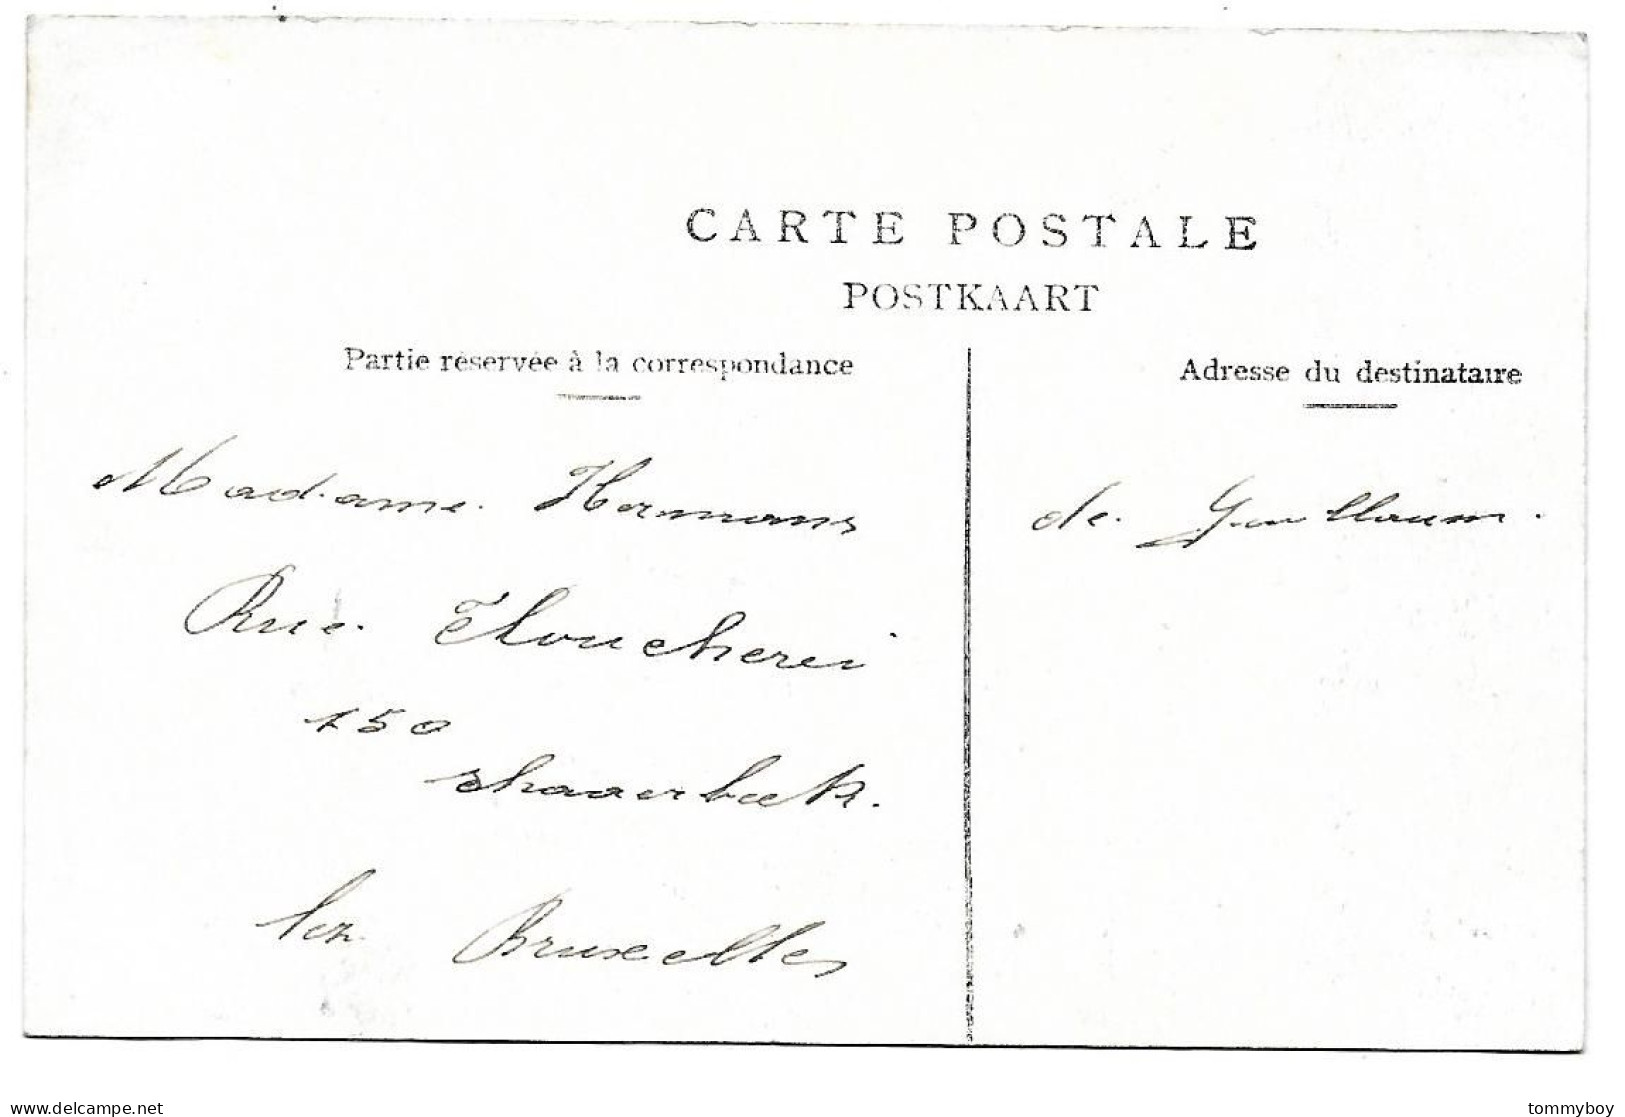 CARTE POSTALE
POSTKAART
Partie réservée à la correspondance
Adresse du destinataire
Madame. Hermans
Rue.
150
schaarbeek.
Bruxelles
de. Guillaum.
delcampe.net
tommyboy